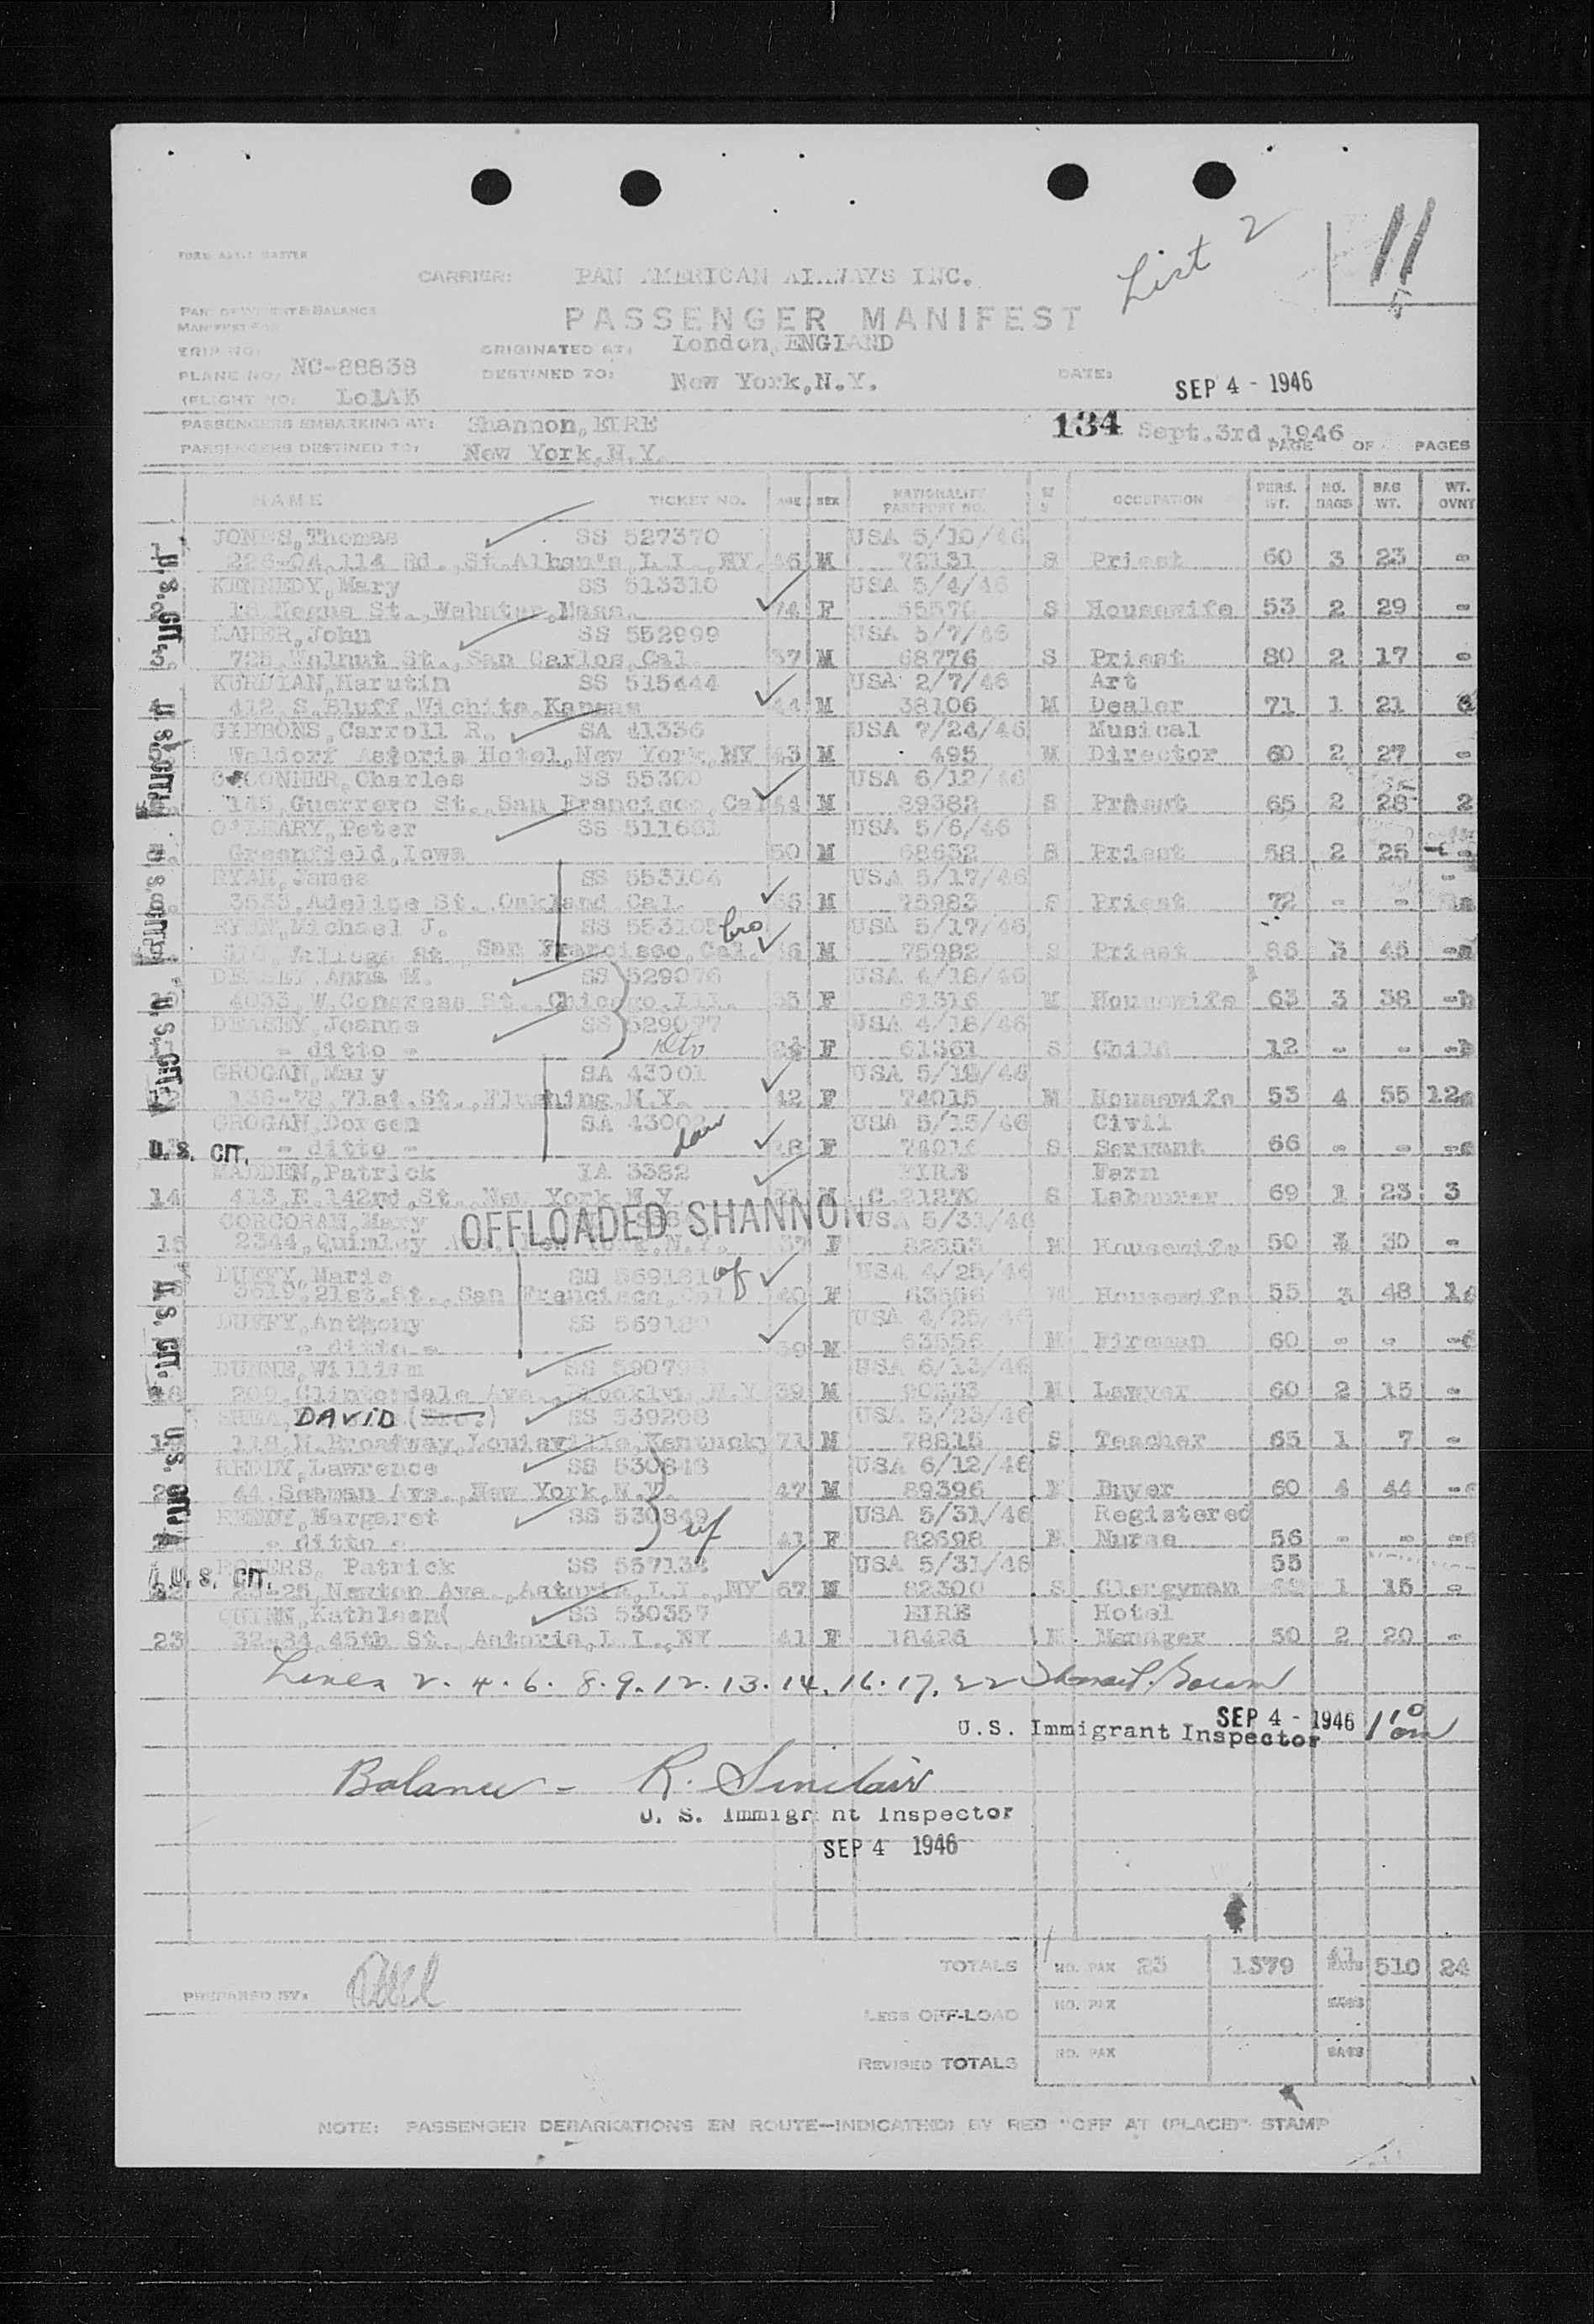 List 2
11
5
FORM
CARRIER: PAN AMERICAN AIRWAYS INC.
PART OF WEIGHT & BALANCE
MANIFEST FOR
PASSENGER MANIFEST
TRIP NO:
ORIGINATED AT: London, ENGLAND
PLANE NO. NC-88838
DESTINED TO: New York, N.Y.
DATE: SEP 4 - 1946
FLIGHT NO:
PASSENGERS EMBARKING AT: Shannon, EIRE
134 Sept. 3rd, 1946
PASSENGERS DESTINED TO: New York, N.Y.
PAGE OF PAGES
NAME TICKET NO. AGE SEX NATIONALITY PASSPORT NO. OCCUPATION PERS. WT. NO. BAGS BAG WT. WT. OVNT
JONES, Thomas SS 527370 USA 5/10/46
226-04, 114 Rd., St. Alban's, L.I., NY. 46 M 72131 S Priest 60 3 23 -
KENNEDY, Mary SS 513310 USA 5/4/46
2 Negus St., Webster, Mass. 74 F S Housewife 53 2 29 -
MAHER, John SS 552999 USA 5/7/46
3 725, Walnut St., San Carlos, Cal. 37 M 68776 S Priest 80 2 17 -
KURDIAN, Harutin SS 515444 USA 2/7/46 Art
412, S. Bluff, Wichita, Kansas 44 M 38106 M Dealer 71 1 21
GIBBONS, Carroll R. SA 41336 USA 7/24/46 Musical
Waldorf Astoria Hotel, New York, NY 43 M 495 M Director 60 2 27 -
O'CONNER, Charles SS 55300 USA 6/12/46
Guerrero St., San Francisco, Cal 44 M 89382 S Priest 65 2 28 2
O'LEARY, Peter SS 511661 USA 5/6/46
Greenfield, Iowa 50 M 68632 S Priest 58 2 25
RYAN, James SS 553104 USA 5/17/46
Adeline St., Oakland Cal. M 75983 S Priest 72 - -
RYAN, Michael J. SS 553105 bro USA 5/17/46
San Francisco, Cal. M 75982 S Priest 3 45
DEASEY, Anna M. SS 529076 USA 4/18/46
4033, W. Congress St., Chicago, Ill. F 61316 M Housewife 63 3 38
DEASEY, Joanne SS 529077 USA 4/18/46
- ditto - F 61361 S Child 12 - -
GROGAN, Mary SA 43001 USA 5/15/46
136-78, 71st. St., Flushing, N.Y. 42 F 74015 M Housewife 53 4 55 12
GROGAN, Doreen SA 43002 dau USA 5/15/46 Civil
U.S. CIT. - ditto - 18 F 74016 S Servant 66 - -
MADDEN, Patrick IA 3382 EIRE Farm
14 413, E. 142nd, St., New York, N.Y. M C.21270 S Labourer 69 1 23 3
CORCORAN, Mary OFFLOADED SHANNON USA 5/31/46
15 2344, F M Housewife 50 3 30 -
DUFFY, Marie SS 569181 wf USA 4/25/46
3619, 21st. St., San Francisco, Cal 40 F M Housewife 55 3 48
DUFFY, Anthony SS 569180 USA 4/25/46
- ditto - M 63556 M Fireman 60 - -
DUNNE, William USA 6/13/46
18 Clintondale Ave., Brooklyn, N.Y 39 M M Lawyer 60 2 15 -
DAVID SS 539298 USA 5/23/46
118, N. Broadway, Louisville, Kentucky 71 M 78815 S Teacher 65 1 7 -
REDDY, Lawrence SS 530848 USA 6/12/46
44, Seaman Ave., New York, N.Y. 47 M 89396 M Buyer 60 4 44
REDDY, Margaret SS 530849 wf USA 5/31/46 Registered
- ditto - 41 F 82698 M Nurse 56 - -
ROGERS, Patrick USA 5/31/46 55
U.S. CIT. 22 Newton Ave., Astoria, L.I., NY 67 M 82300 S Clergyman 1 15 -
QUINN, Kathleen( SS 530357 EIRE Hotel
23 32-34, 45th St. Astoria, L.I., NY 41 F 18426 M Manager 50 2 20 -
Lines 2. 4. 6. 8. 9. 12. 13. 14. 16. 17. 22
SEP 4 - 1946
U.S. Immigrant Inspector
Balance - R. Sinclair
U. S. Immigrant Inspector
SEP 4 1946
TOTALS NO. PAX 23 1379 41 BAGS 510 24
PREPARED BY:
LESS OFF-LOAD NO. PAX BAGS
REVISED TOTALS NO. PAX BAGS
NOTE: PASSENGER DEBARKATIONS EN ROUTE—INDICATED BY RED "OFF AT (PLACE)" STAMP